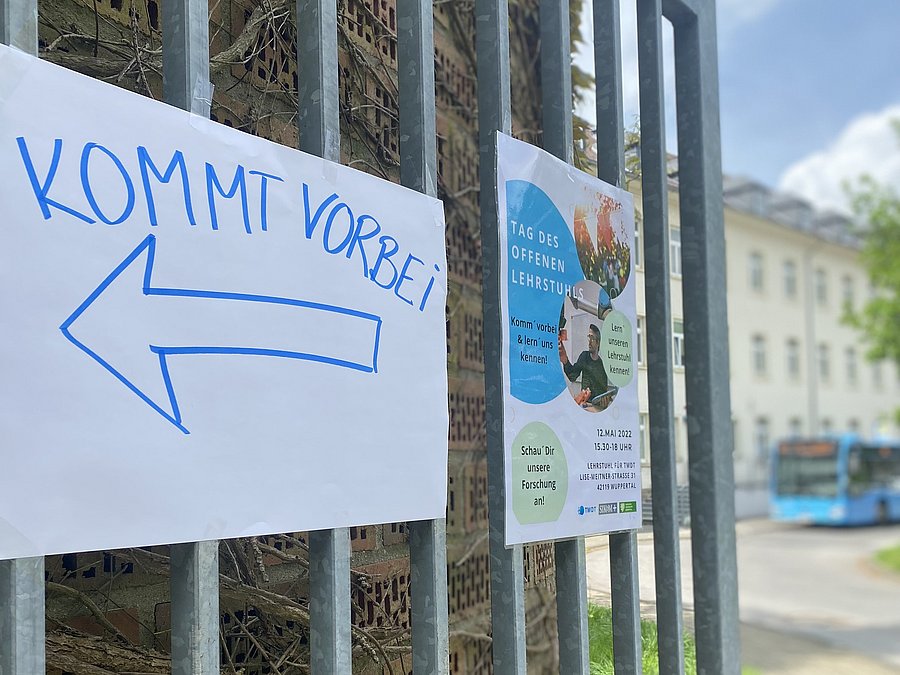 KOMMT VORBEI
TAG DES
OFFENEN
LEHRSTUHLS
Komm´vorbei
& lern´uns
kennen!
Lern´
unseren
Lehrstuhl
kennen!
Schau´Dir
unsere
Forschung
an!
12.MAI 2022
15.30-18 UHR
LEHRSTUHL FÜR TWDT
LISE-MEITNER-STRASSE 31
42119 WUPPERTAL
TWDT